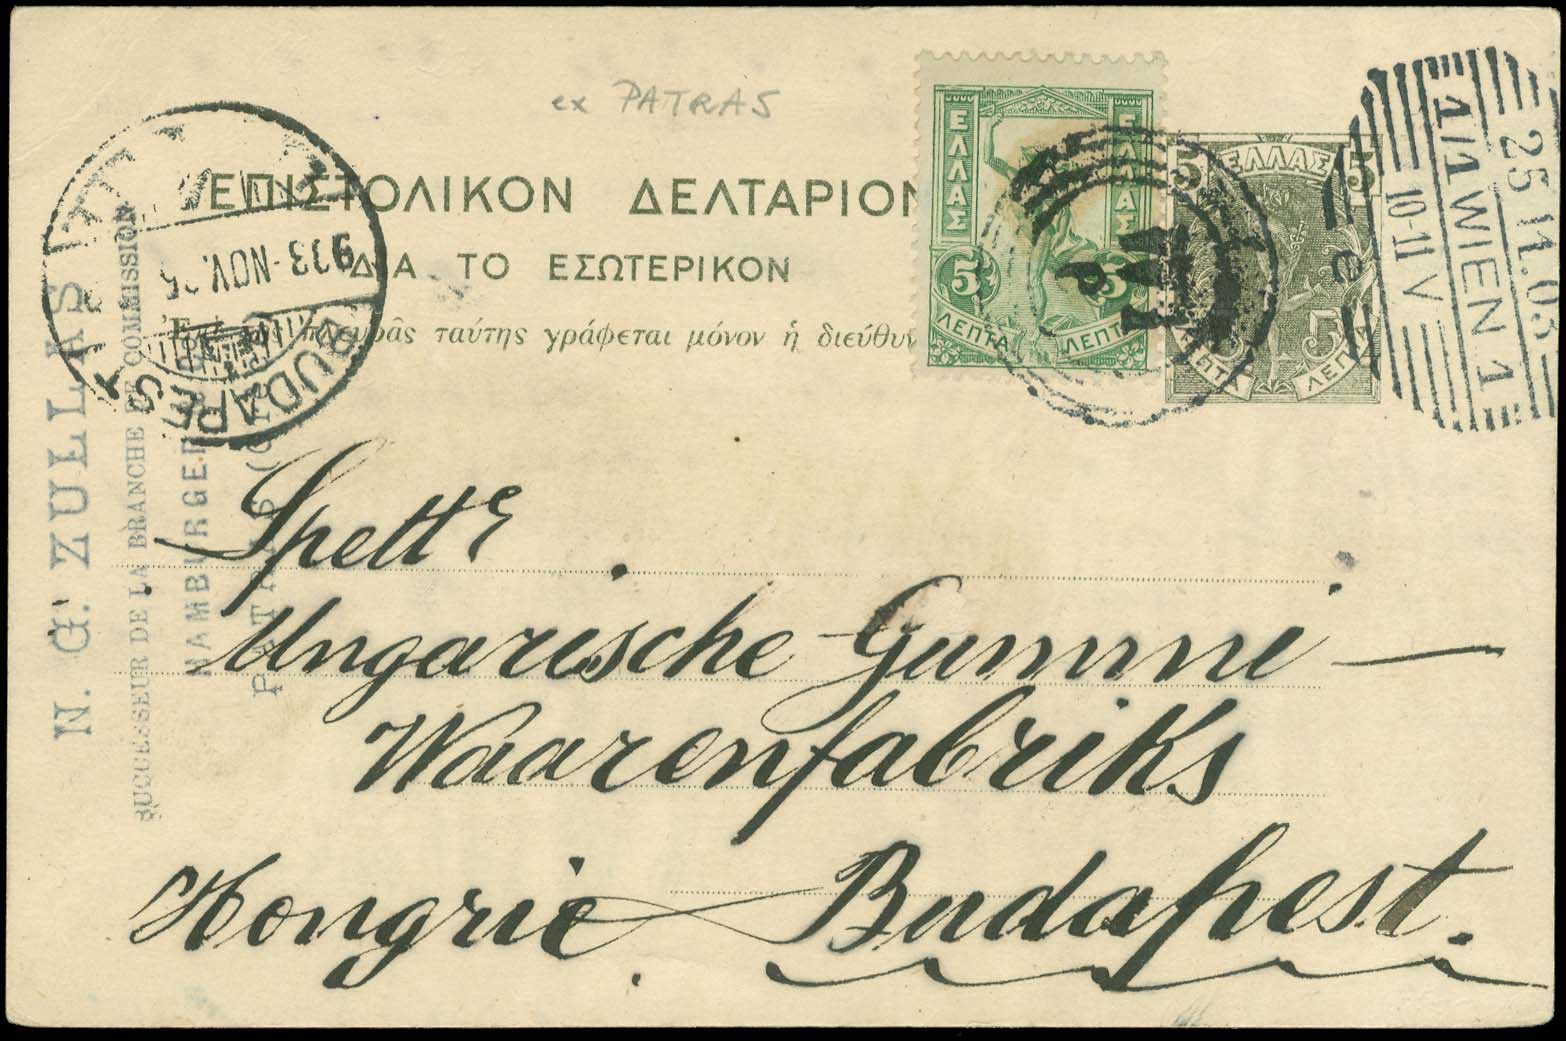 ex PATRAS
ΕΠΙΣΤΟΛΙΚΟΝ ΔΕΛΤΑΡΙΟΝ
ΔΙΑ ΤΟ ΕΣΩΤΕΡΙΚΟΝ
ταύτης γράφεται μόνον ἡ διεύθυν
ΕΛΛΑΣ
ΕΛΛΑΣ
5
5
ΛΕΠΤΑ
ΛΕΠΤ
5 ΕΛΛΑΣ 5
5
ΛΕΠΤΑ
25 11.03
1/1 WIEN 1
10-11V
903-NOV.
BUDAPES
N. G. ZULLAS
SUCCESSEUR DE LA BRANCHE DE COMMISSION
HAMBURGER
PATRAS
Spett.e
Ungarische Gummi-
Waarenfabriks
Hongrie. Budapest.